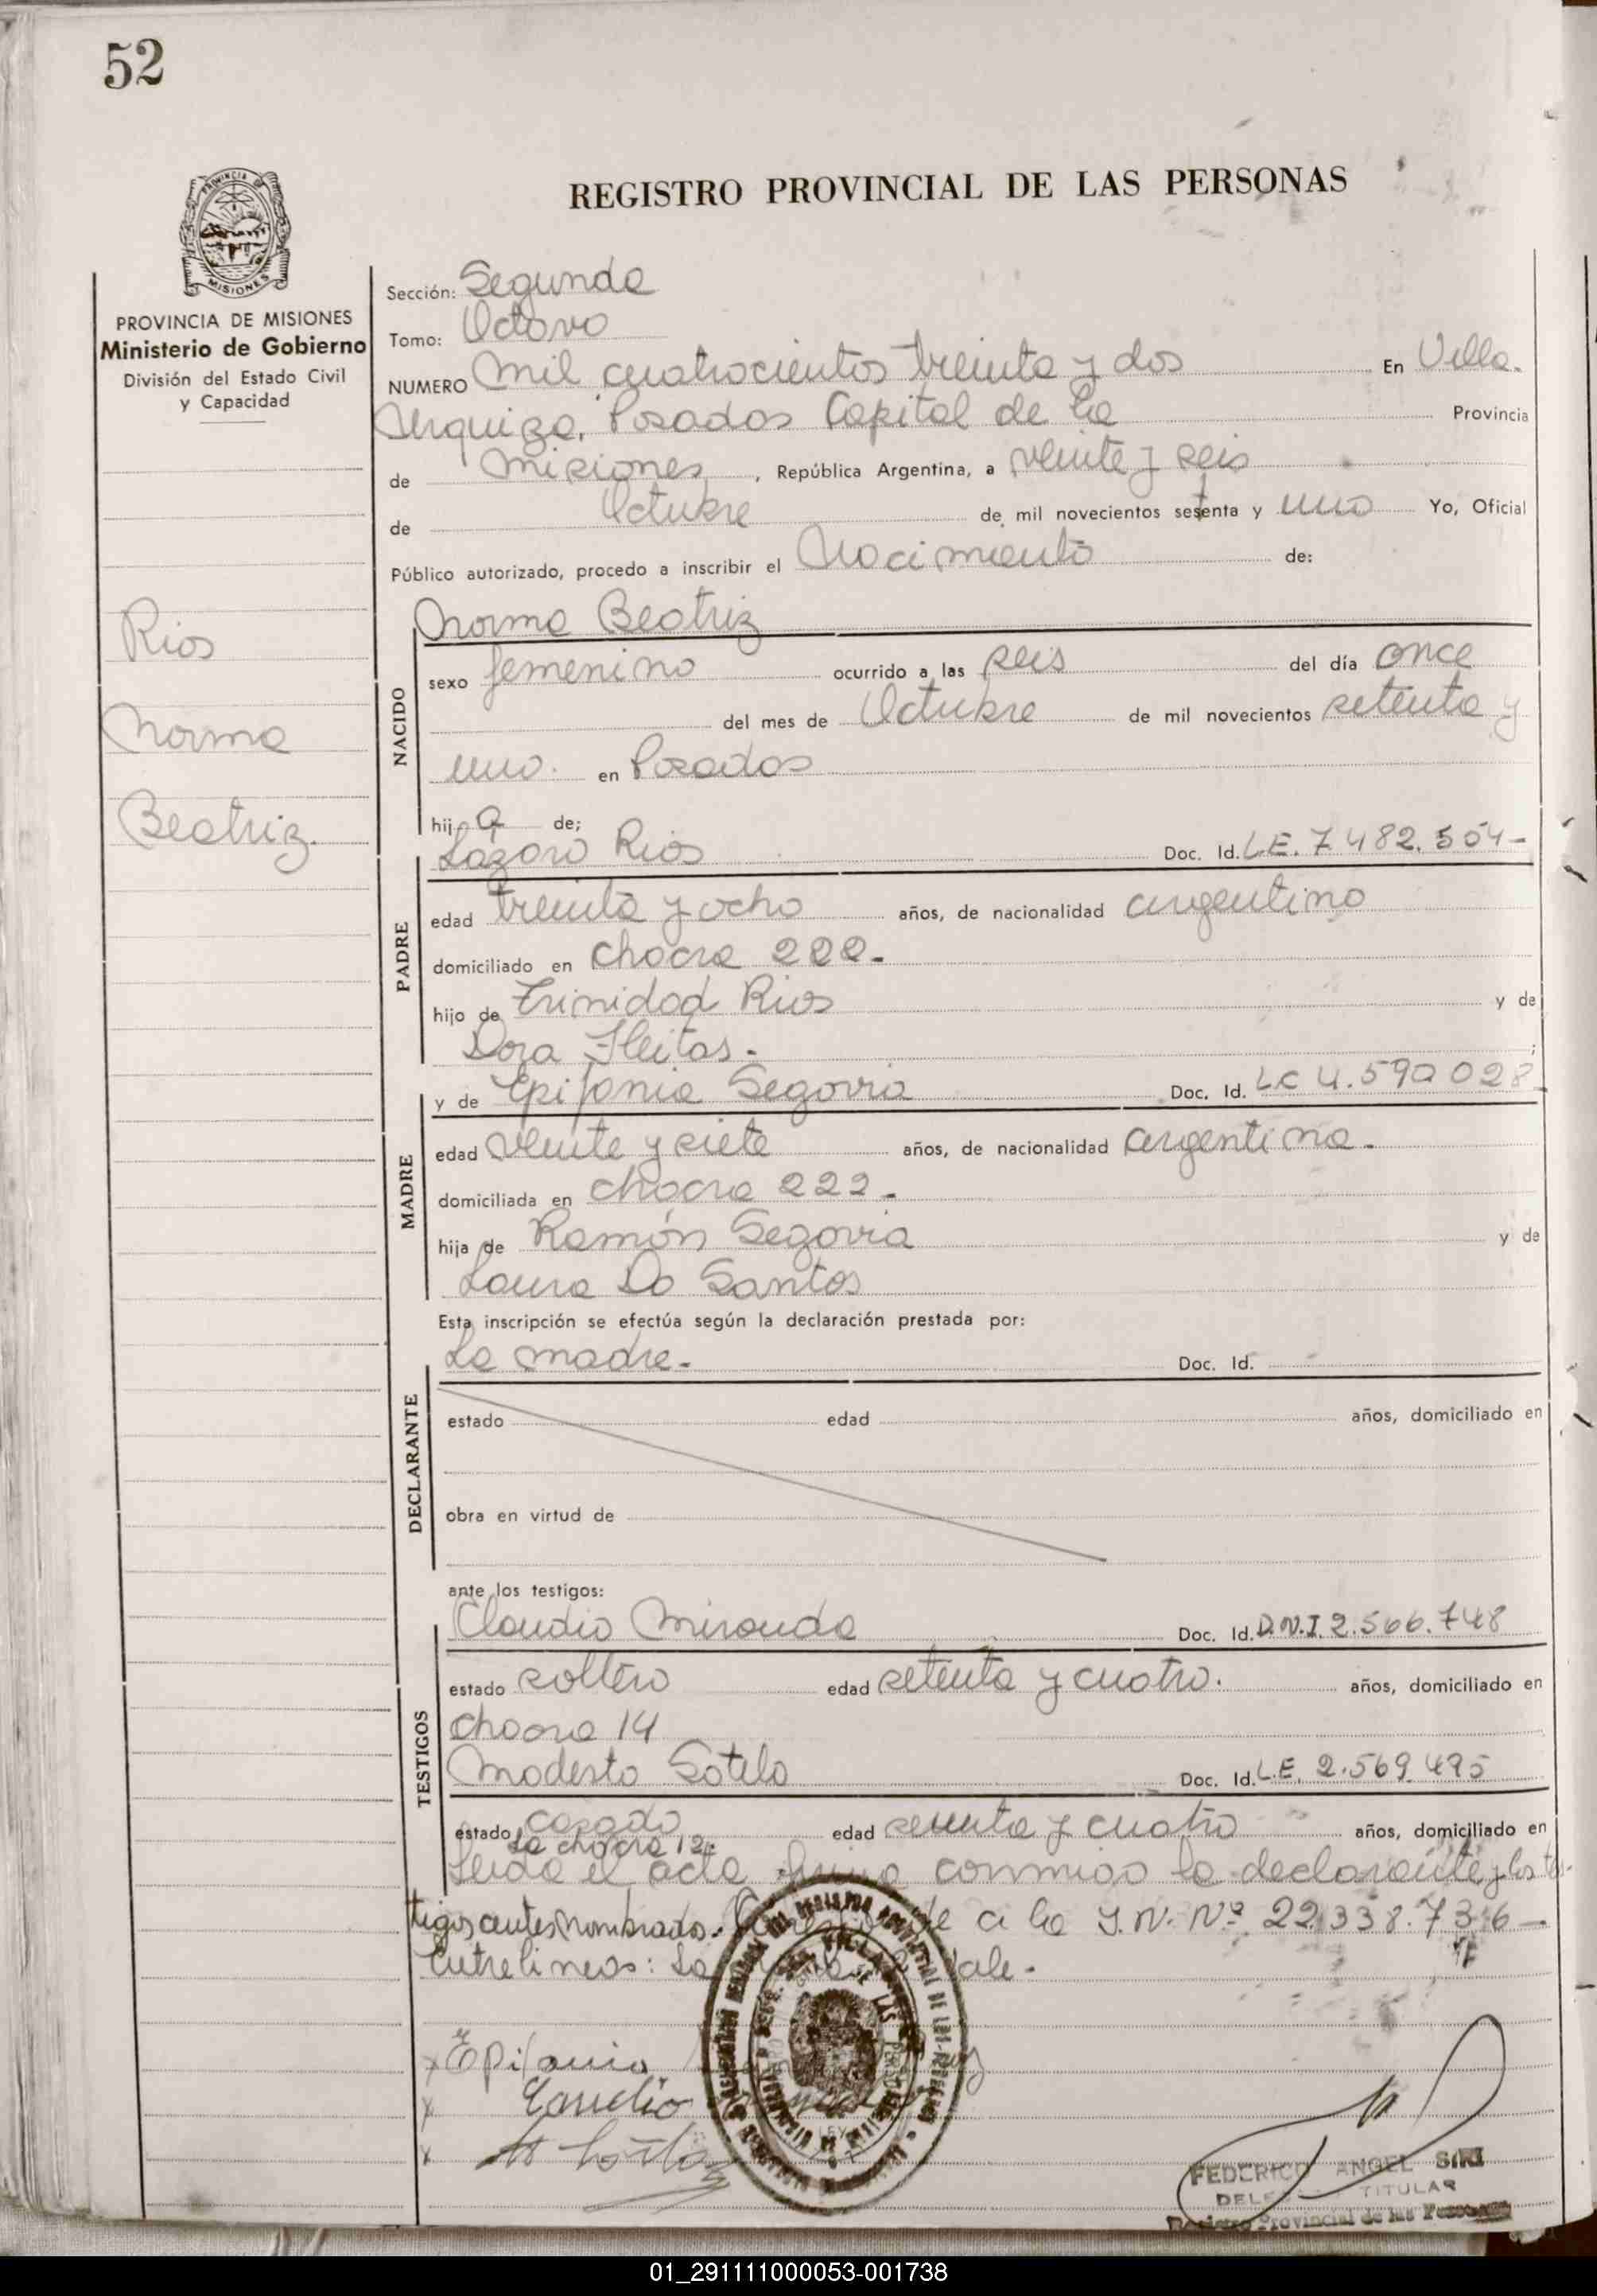 52
REGISTRO PROVINCIAL DE LAS PERSONAS
MISIONES
PROVINCIA DE MISIONES
Ministerio de Gobierno
División del Estado Civil
y Capacidad
Rios
Norma
Beatriz.
Sección: Segunda
Tomo: Octavo
NUMERO Mil cuatrocientos treinta y dos En Villa
Urquiza, Posadas Capital de la Provincia
de Misiones, República Argentina, a veinte y seis
de Octubre de mil novecientos setenta y uno Yo, Oficial
Público autorizado, procedo a inscribir el Nacimiento de:
Norma Beatriz
NACIDO
sexo femenino ocurrido a las seis del día once
del mes de Octubre de mil novecientos setenta y
uno. en Posadas
hija de;
Lázaro Rios Doc. Id. L.E. 7.482.504-
PADRE
edad treinta y ocho años, de nacionalidad argentino
domiciliado en chacra 222-
hijo de Trinidad Rios y de
Dora Fleitas-;
y de Epifania Segovia Doc. Id. L.C 4.590028
MADRE
edad veinte y siete años, de nacionalidad argentina-
domiciliada en chacra 222-
hija de Ramón Segovia y de
Laura Do Santos
Esta inscripción se efectúa según la declaración prestada por:
La madre- Doc. Id.
DECLARANTE
estado edad años, domiciliado en
obra en virtud de
ante los testigos:
Claudio Miranda Doc. Id. D.N.I. 2.566.748
TESTIGOS
estado soltero edad setenta y cuatro. años, domiciliado en
chacra 14
Modesto Sotelo Doc. Id. L.E. 2.569.495
estado casado edad setenta y cuatro años, domiciliado en
La chacra 12:
Leida el acta firma conmigo la declarante y los tes-
tigos antes nombrados. a la I.N. Nº 22.338.736-
Entrelineas: La Vale.
x Epifania
x Claudio
x
FEDERICO ANGEL SIRI
TITULAR
Registro Provincial de las Personas
01_291111000053-001738